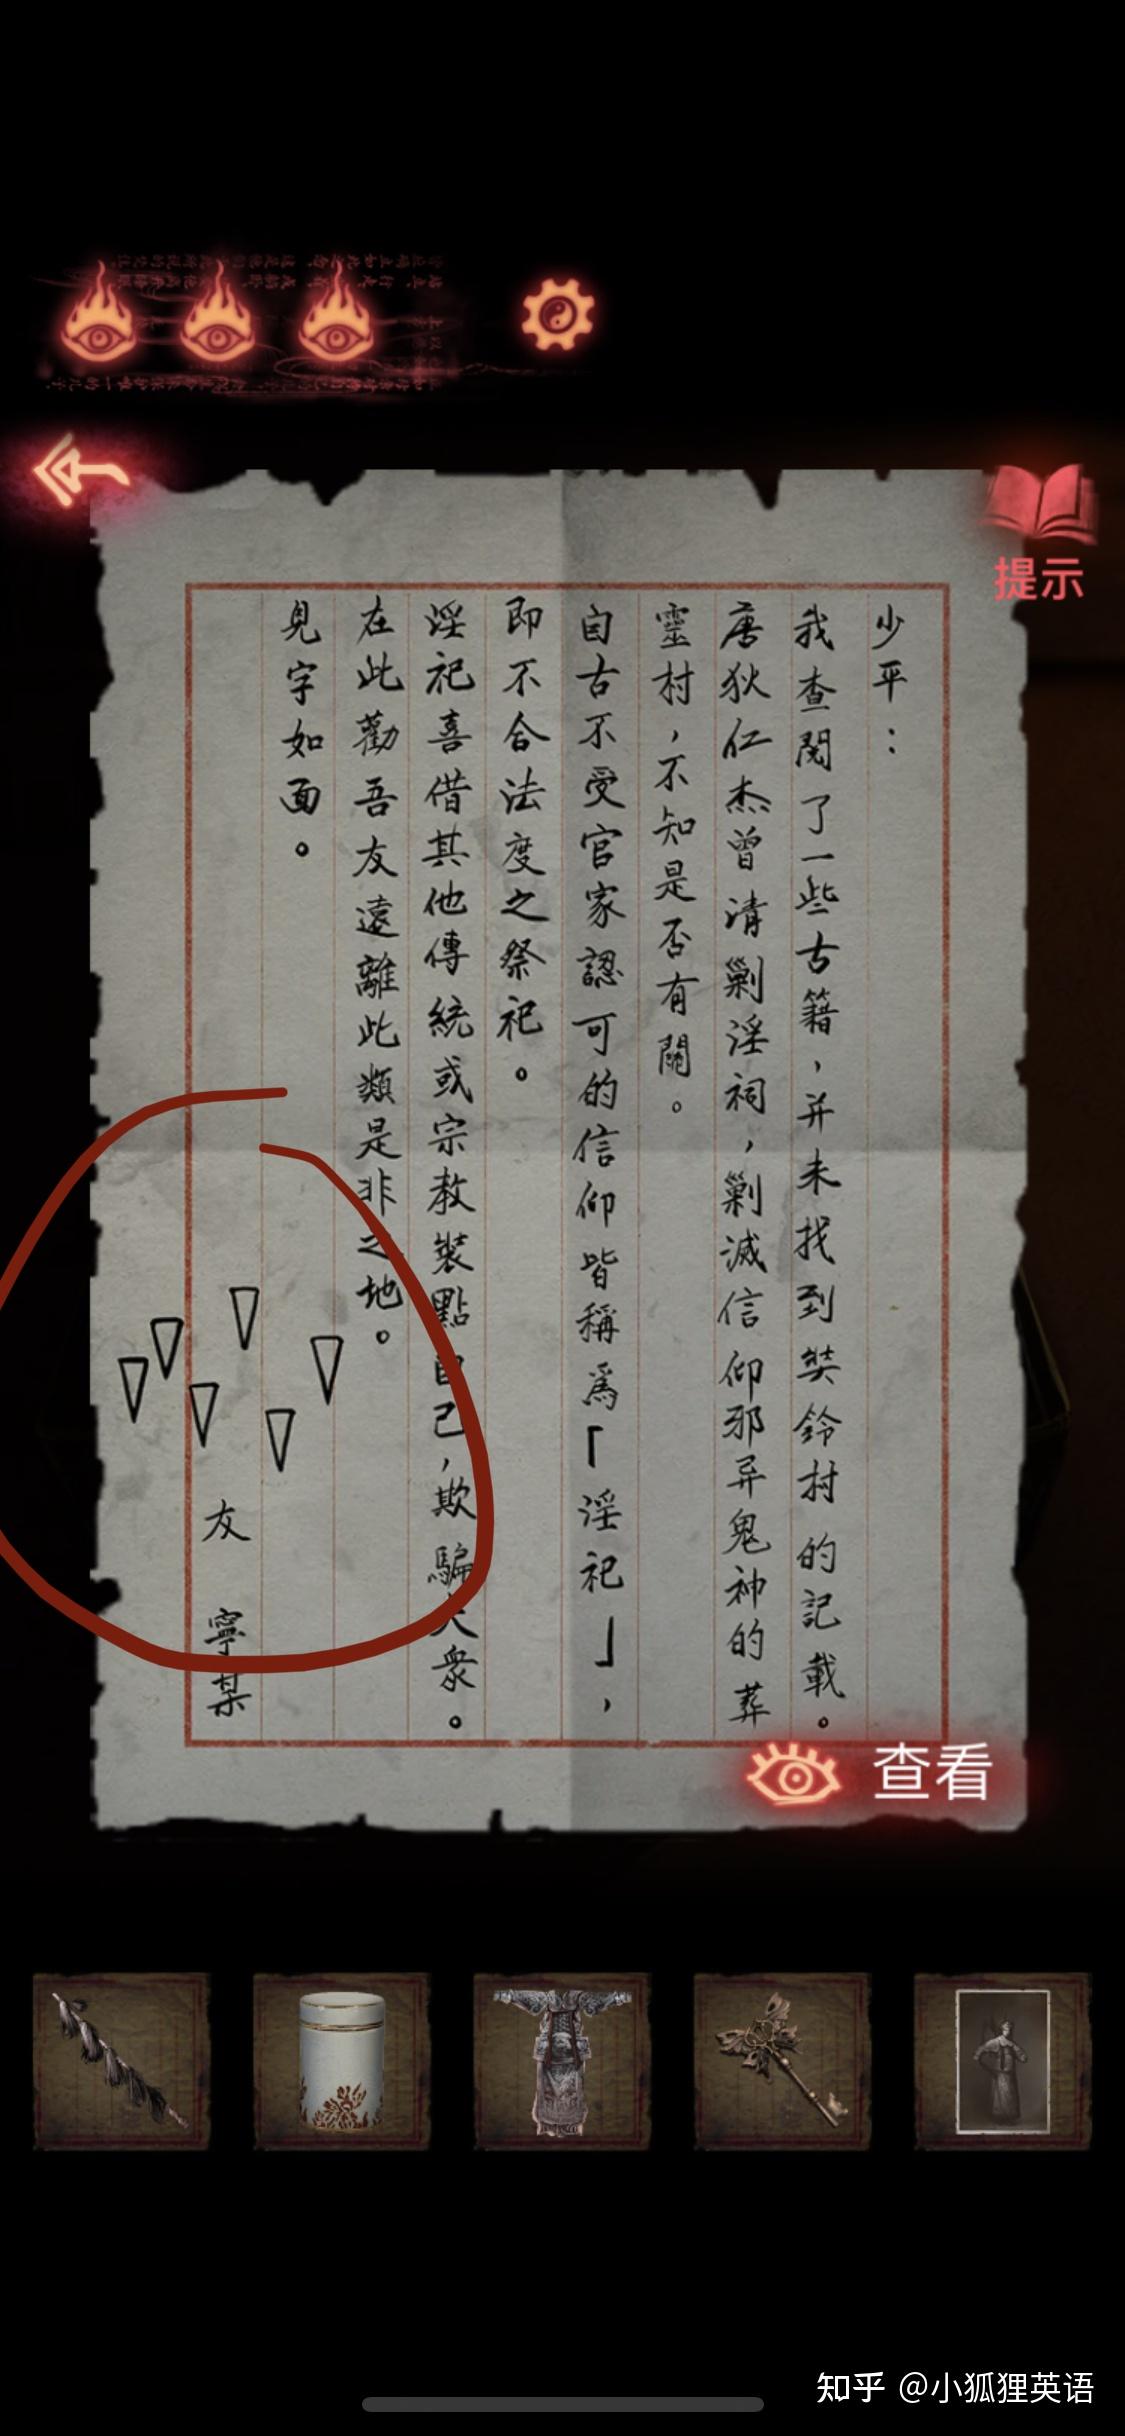 提示
少平：
我查閱了一些古籍，并未找到奘鈴村的記載。
唐狄仁杰曾清剿淫祠，剿滅信仰邪异鬼神的葬
靈村，不知是否有關。
自古不受官家認可的信仰皆稱爲「淫祀」，
即不合法度之祭祀。
淫祀喜借其他傳統或宗教裝點自己，欺騙大衆。
在此勸吾友遠離此類是非之地。
見字如面。
友 寧某
查看
知乎 @小狐狸英语